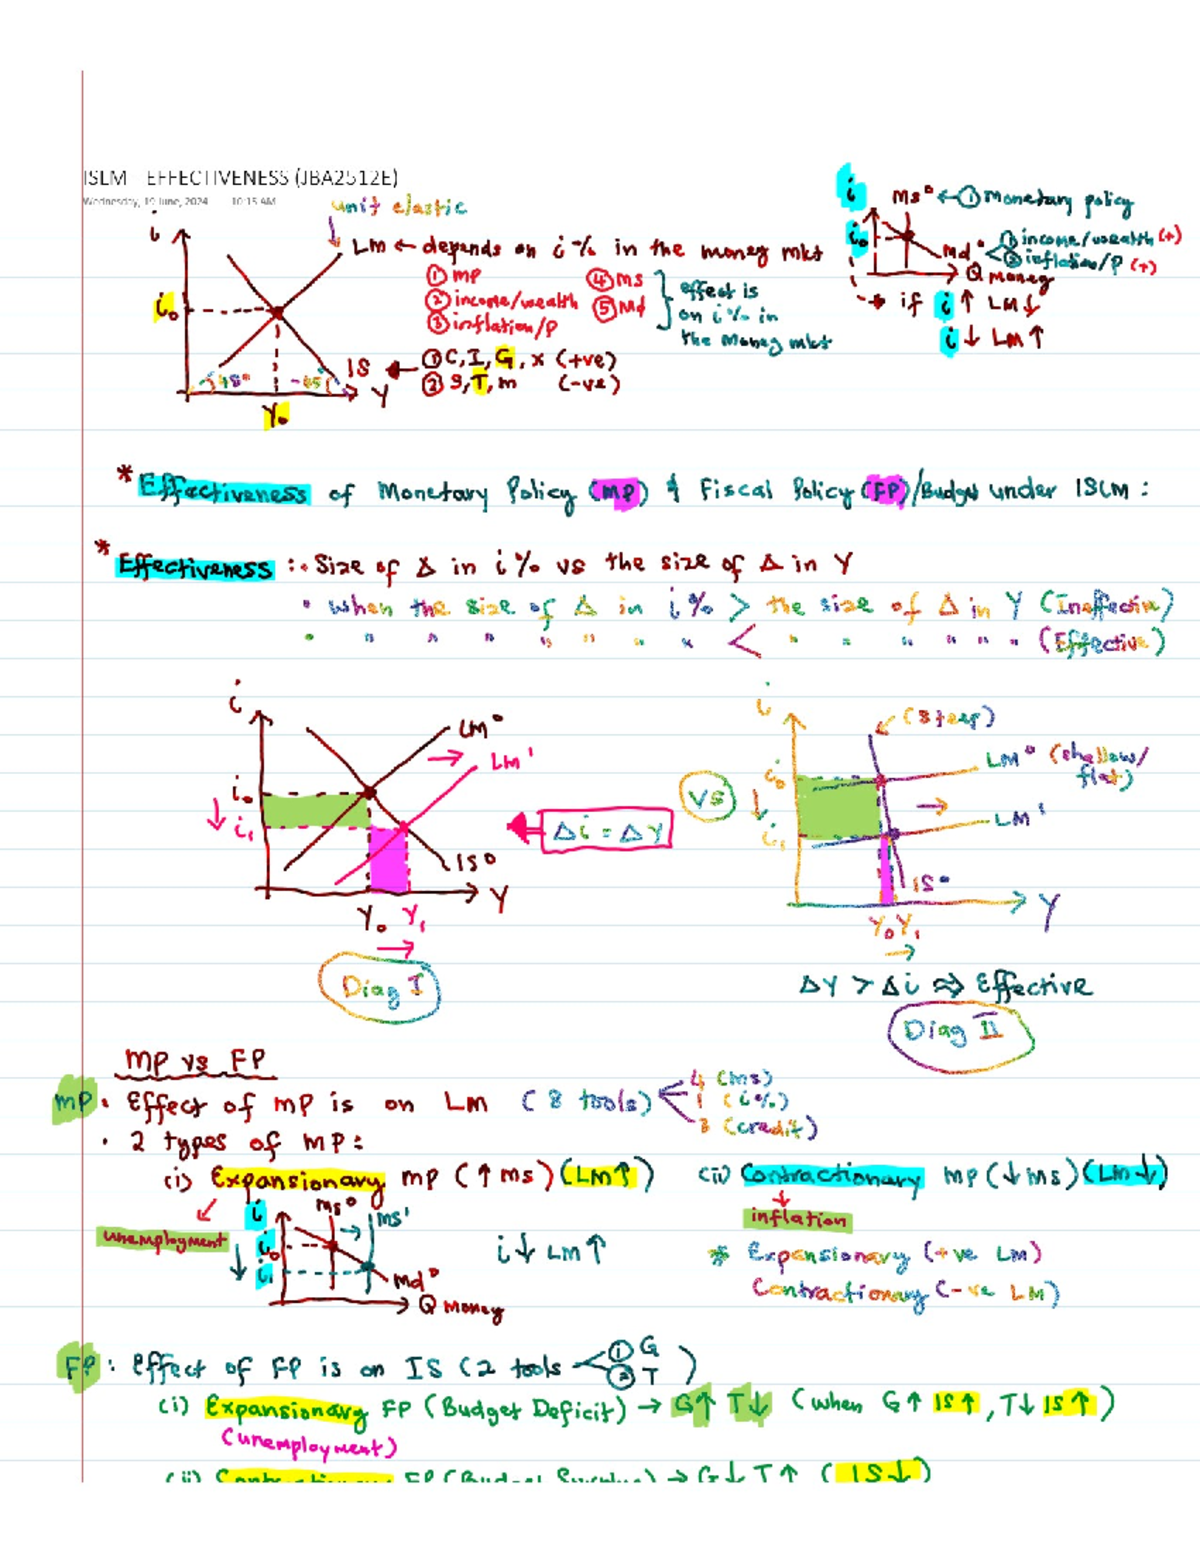 ISLM EFFECTIVENESS (JBA2512E)
Wednesday, 19 June, 2024 10:15 AM
unit elastic
i
LM ← depends on i% in the money mkt
① mp ④ ms
② income/wealth ⑤ Md
③ inflation/p
effect is
on i% in
the money mkt
i₀
IS ← ① C, I, G, x (+ve)
② S, T, m (-ve)
45° -45
Y
Y₀
i
Ms° ← ① monetary policy
i₀
Md° ① income/wealth (+)
② inflation/p (+)
Q money
→ if i ↑ LM ↓
i ↓ LM ↑
* Effectiveness of Monetary Policy (MP) & Fiscal Policy (FP)/Budget under ISLM :
* Effectiveness : • Size of Δ in i% vs the size of Δ in Y
• when the size of Δ in i% > the size of Δ in Y (Ineffective)
• " " " " " " " < " " " " " " (Effective)
i
LM°
LM'
i₀
i₁
IS°
Y
Y₀ Y₁
Diag I
Δi = ΔY
VS
i
(steep)
LM° (shallow/
flat)
i₀
LM'
i₁
IS°
Y
Y₀ Y₁
ΔY > Δi ⇒ Effective
Diag II
MP vs FP
MP • Effect of MP is on LM (8 tools) 4 (ms)
1 (i%)
3 (credit)
• 2 types of MP :
(i) Expansionary MP (↑ms) (LM↑) (ii) Contractionary MP (↓ms) (LM↓)
unemployment
inflation
i
Ms° Ms'
i₀
i₁
Md°
Q money
i↓ LM↑
* Expansionary (+ve LM)
Contractionary (-ve LM)
FP : Effect of FP is on IS (2 tools ① G
② T )
(i) Expansionary FP (Budget Deficit) → G↑ T↓ (when G↑ IS↑, T↓ IS↑)
(unemployment)
(ii) Contractionary FP (Budget Surplus) → G↓ T↑ (IS↓)